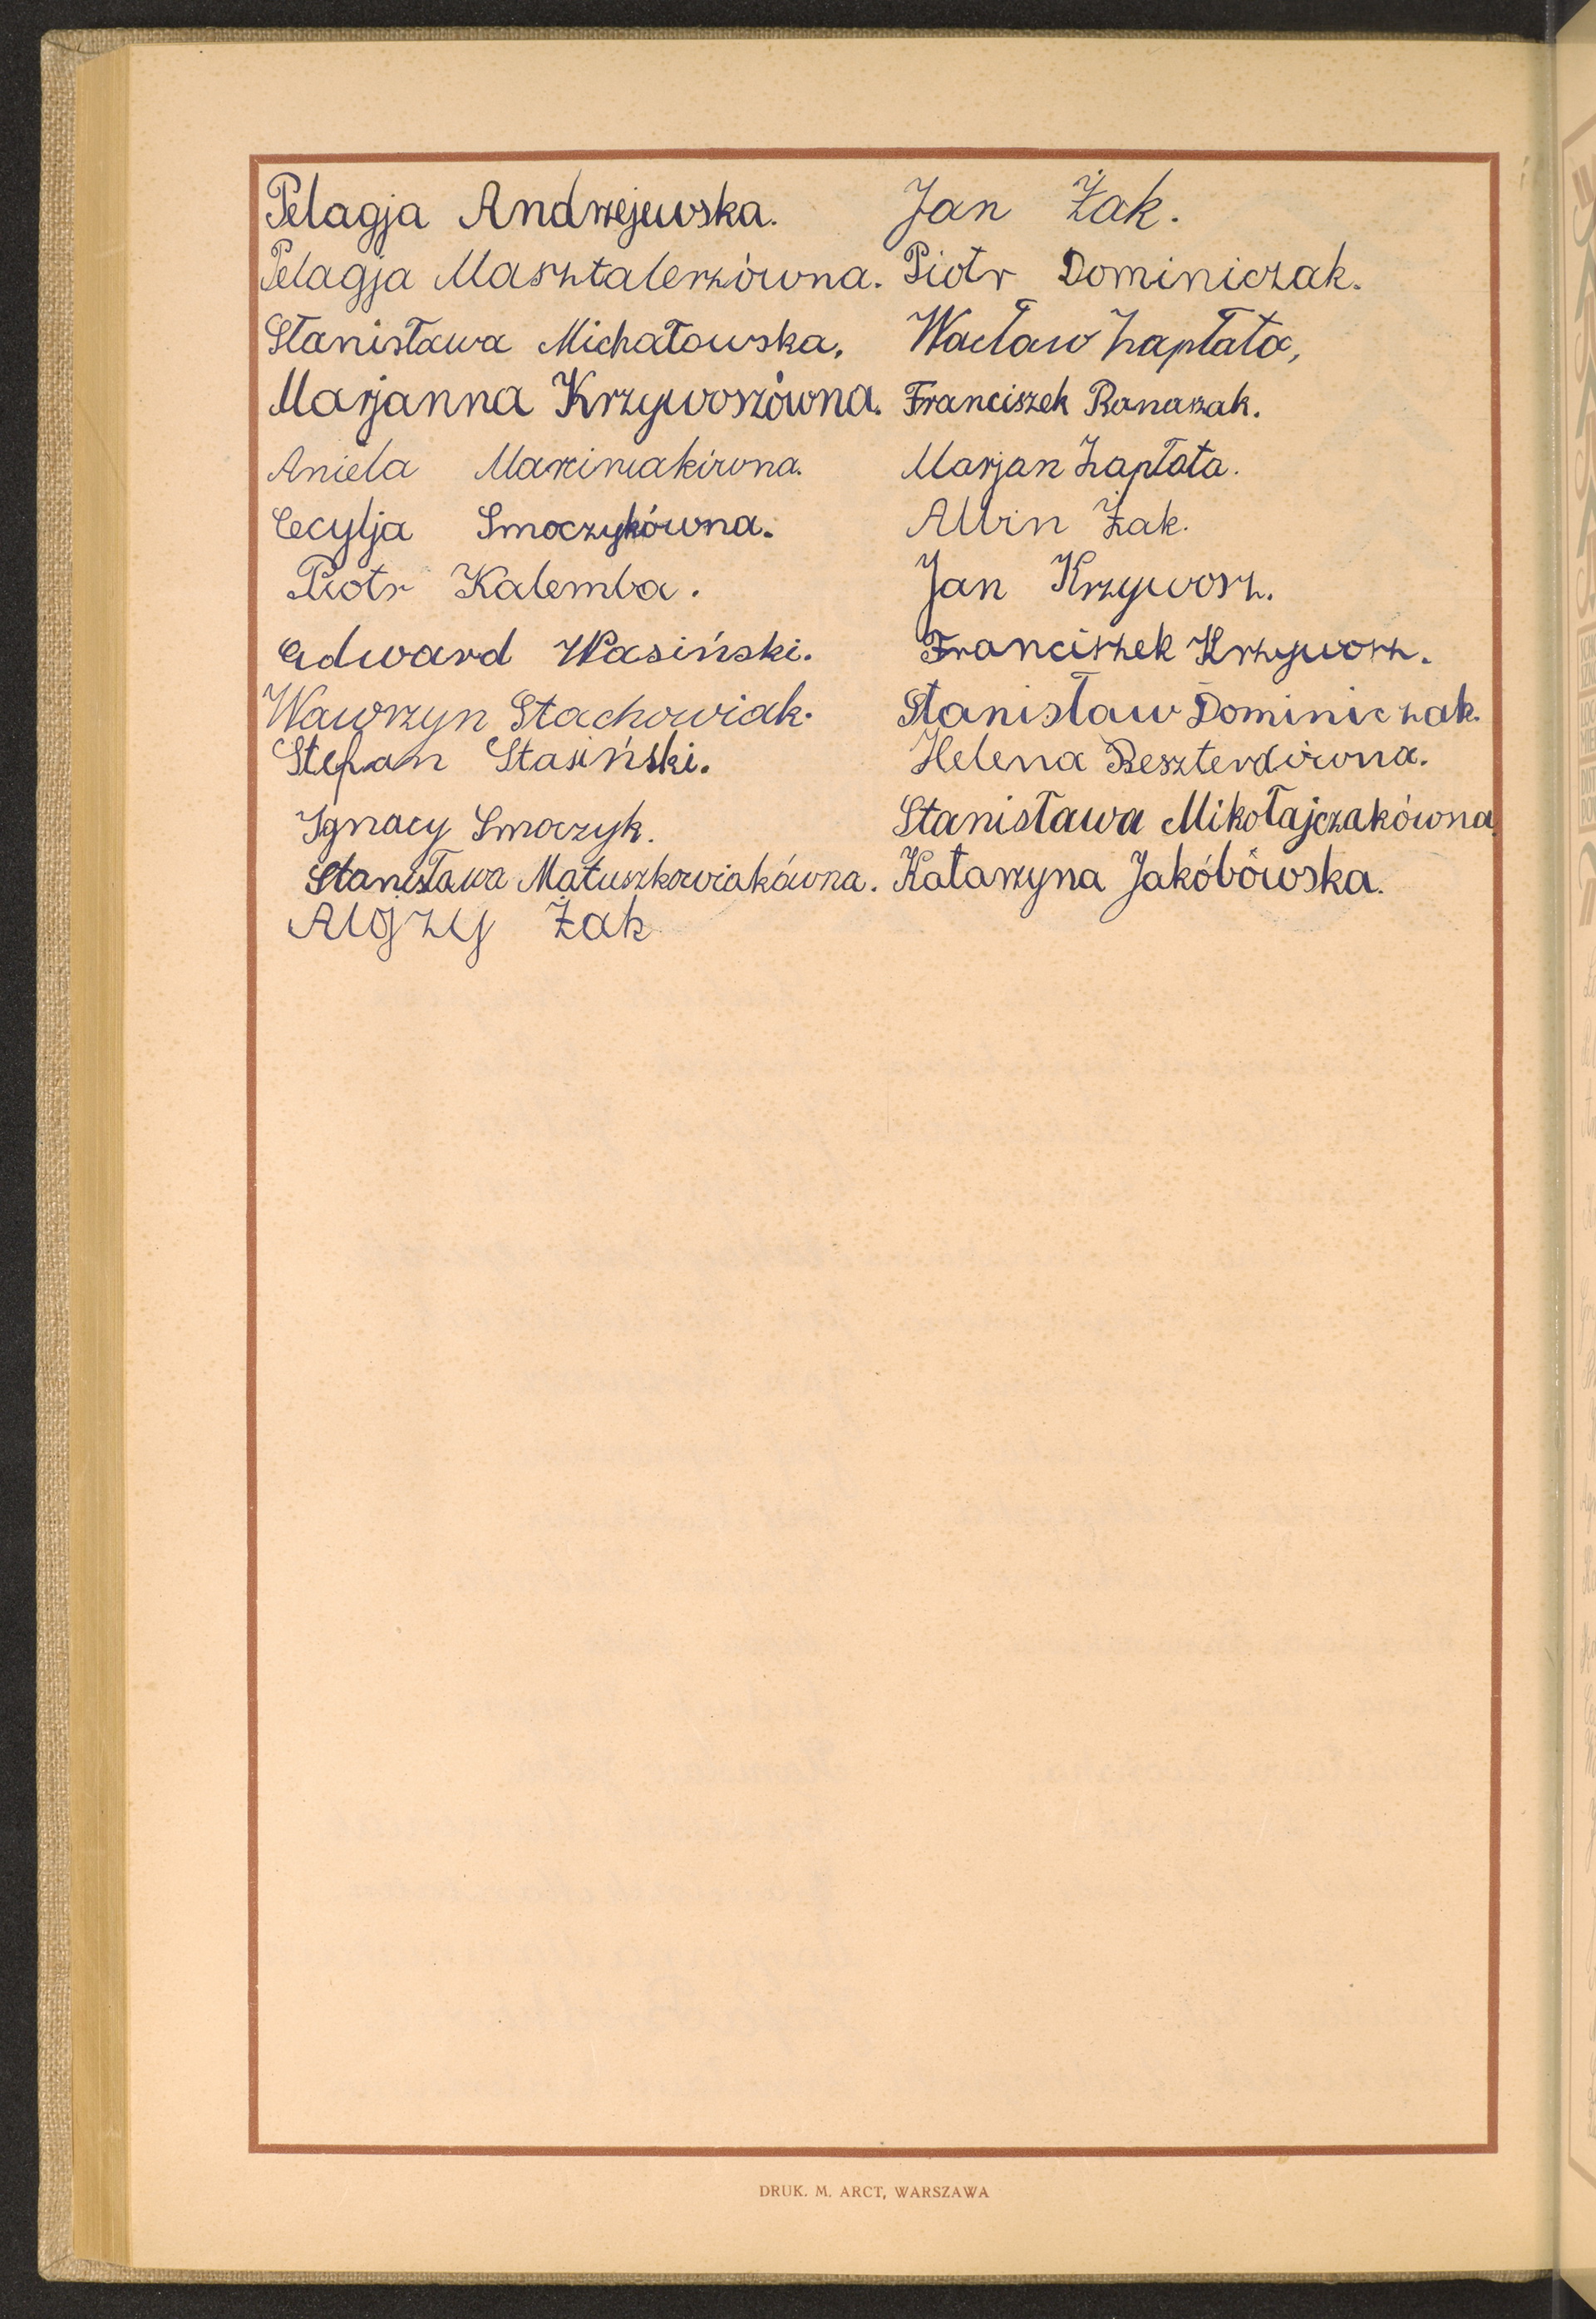 Pelagja Andrzejewska.
Pelagja Masztalerzówna.
Stanisława Michałowska.
Marjanna Krzywoszówna.
Aniela Marciniakówna.
Cecylja Smoczykówna.
Piotr Kalemba.
Edward Wasiński.
Wawrzyn Stachowiak.
Stefan Stasiński.
Ignacy Smoczyk.
Stanisława Matuszkowiakówna.
Alojzy Żak
Jan Żak.
Piotr Dominiczak.
Wacław Zapłata,
Franciszek Ranaszak.
Marjan Zapłata.
Albin Żak.
Jan Krzywosz.
Franciszek Krzywosz.
Stanisław Dominiczak.
Helena Beszterdówna.
Stanisława Mikołajczakówna.
Katarzyna Jakóbówska.
DRUK. M. ARCT, WARSZAWA